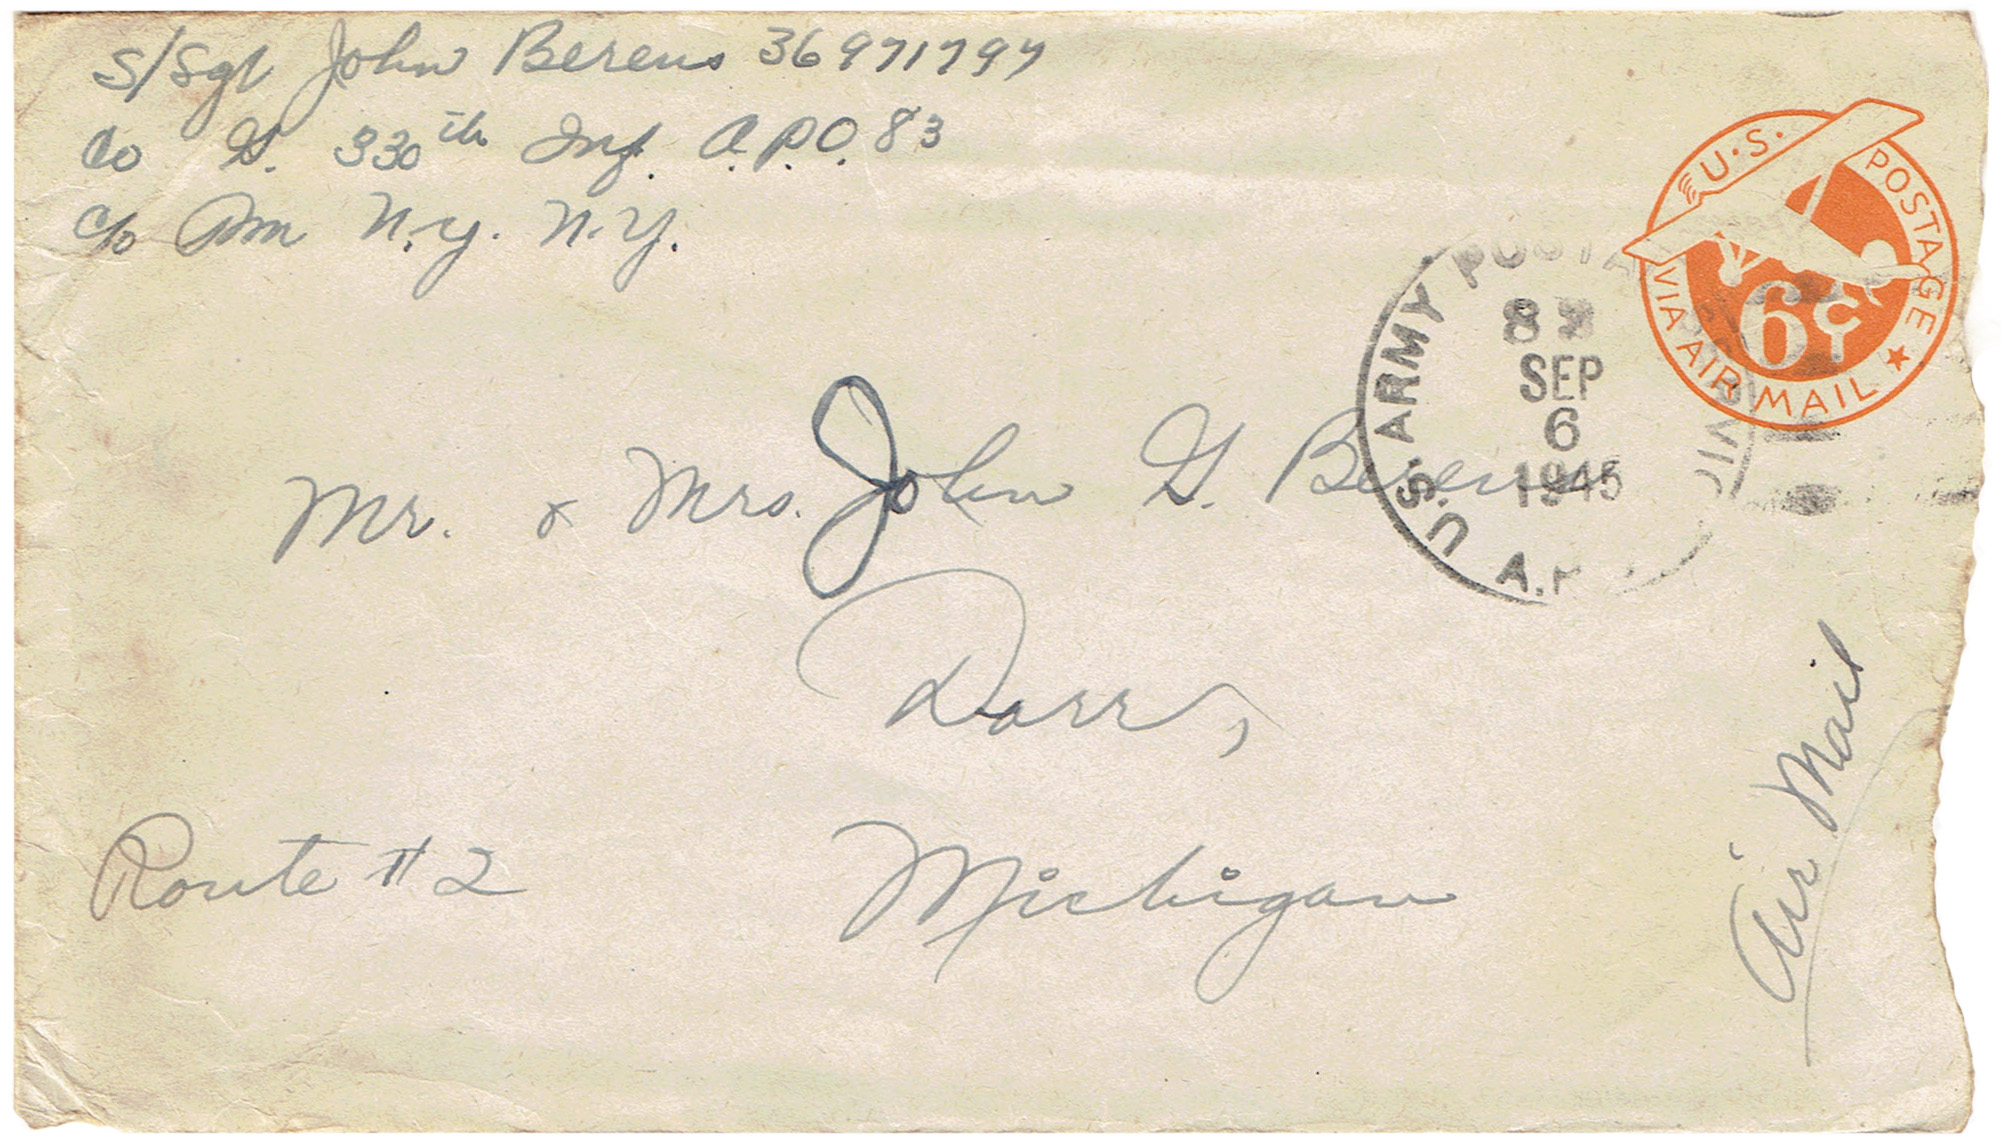 S/Sgt John Berens 36971797
Co G. 330th Inf. A.P.O. 83
c/o Pm N.y. N.Y.
U.S. POSTAGE
VIA AIR MAIL
6¢
U.S. ARMY POSTAL
8
SEP
6
1945
A.P.
Mr. & Mrs. John G. Berens
Dorr,
Route #2 Michigan
Air Mail